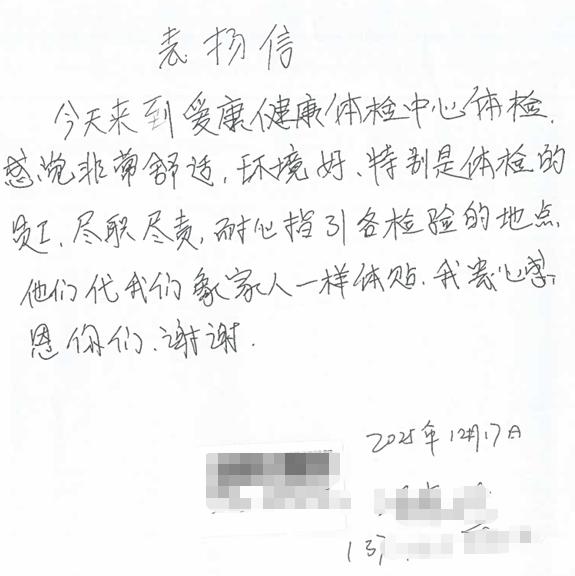 表扬信
今天来到爱康健康体检中心体检.
感觉非常舒适,环境好、特别是体检的
员工、尽职尽责,耐心指引各检验的地点
他们代我们象家人一样体贴.我衷心感
恩你们.谢谢.
2025年12月17日
137